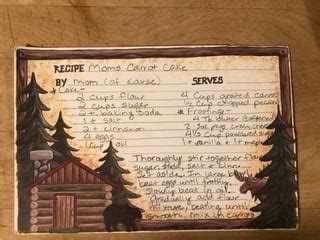 RECIPE Moms Carrot Cake
BY Mom (of corse) SERVES
* Cake-
2 cups flour
2 cups sugar
2 t. baking soda
1 t salt
2 t cinnamon
4 eggs
1 cup oil
4 cups grated carrots
1/2 cup chopped pecans
* Frosting-
4 Tb butter (softened)
2- 8oz pkgs cream cheese
4 1/2 cup powdered
1 t vanilla + 1 t maple
Thoroughly stir together flour
sugar, soda, salt + cinn.
Set aside. In large bowl
beat eggs until frothy,
slowly beat in oil.
gradually add flour
mixture, beating until
smooth. mix in carrots